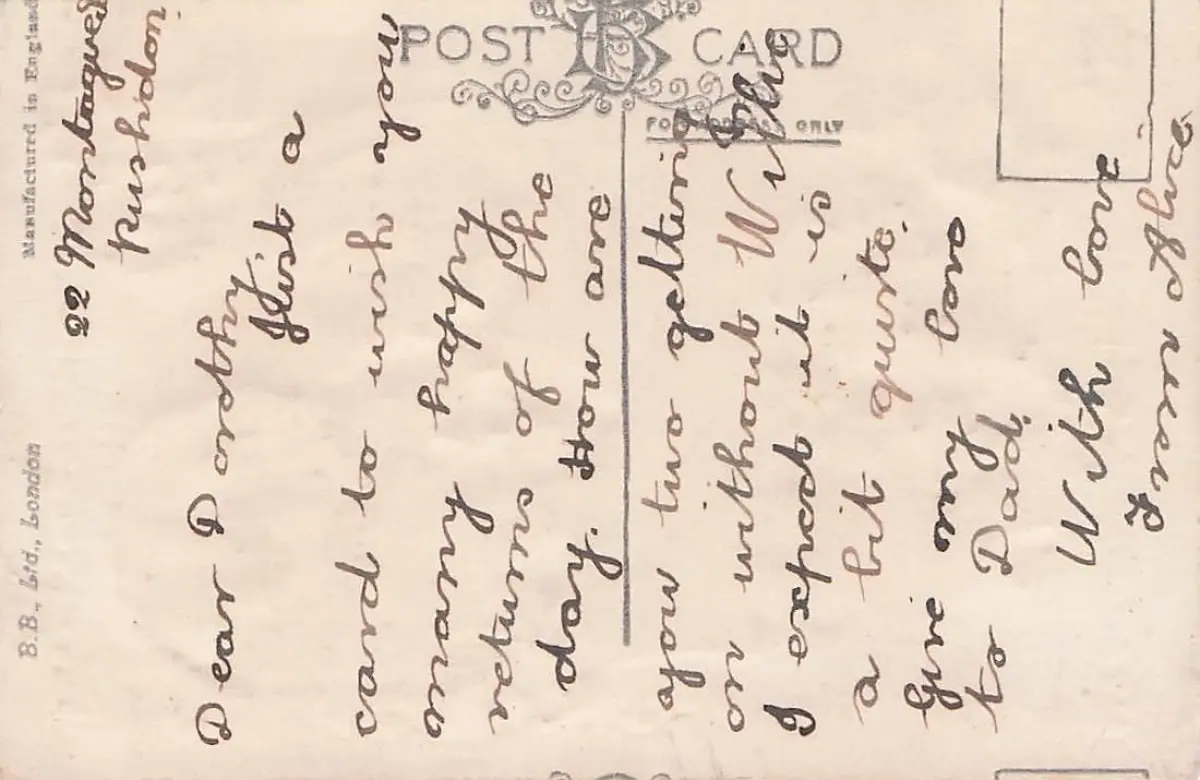 B.B., Ltd., London
Manufactured in England
POST CARD
FOR ADDRESS ONLY
22 Montague
Rushdon
Dear Dorothy
Just a
card to wish you
many happy
returns of the
day. How are
you two getting
on without Willie
I expect it is
a bit quite.
Give my love
to Dad.
With love
from Olive